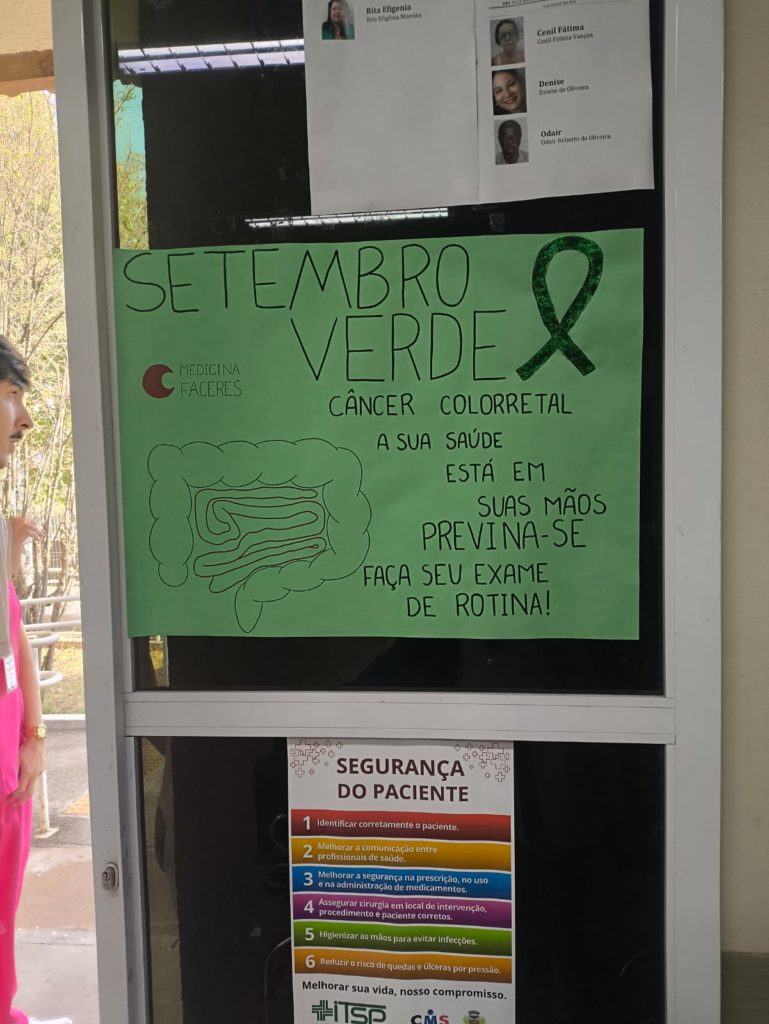 Rita Efigenia
Rita Efigênia Moreira
Cenil Fátima
Cenil Fátima Vançan
Denise
Denise de Oliveira
Odair
Odair Roberto de Oliveira
SETEMBRO
VERDE
MEDICINA
FACERES
CÂNCER COLORRETAL
A SUA SAÚDE
ESTÁ EM
SUAS MÃOS
PREVINA-SE
FAÇA SEU EXAME
DE ROTINA!
SEGURANÇA
DO PACIENTE
1 Identificar corretamente o paciente.
2 Melhorar a comunicação entre
profissionais de saúde.
3 Melhorar a segurança na prescrição, no uso
e na administração de medicamentos.
4 Assegurar cirurgia em local de intervenção,
procedimento e paciente corretos.
5 Higienizar as mãos para evitar infecções.
6 Reduzir o risco de quedas e úlceras por pressão.
Melhorar sua vida, nosso compromisso.
iTSP CMS